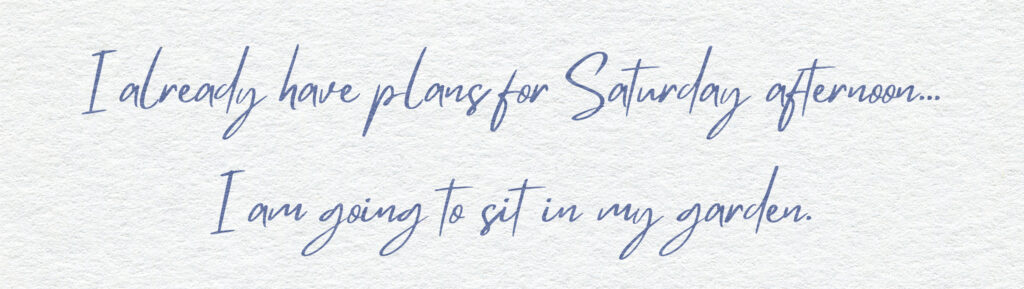 I already have plans for Saturday afternoon...
I am going to sit in my garden.